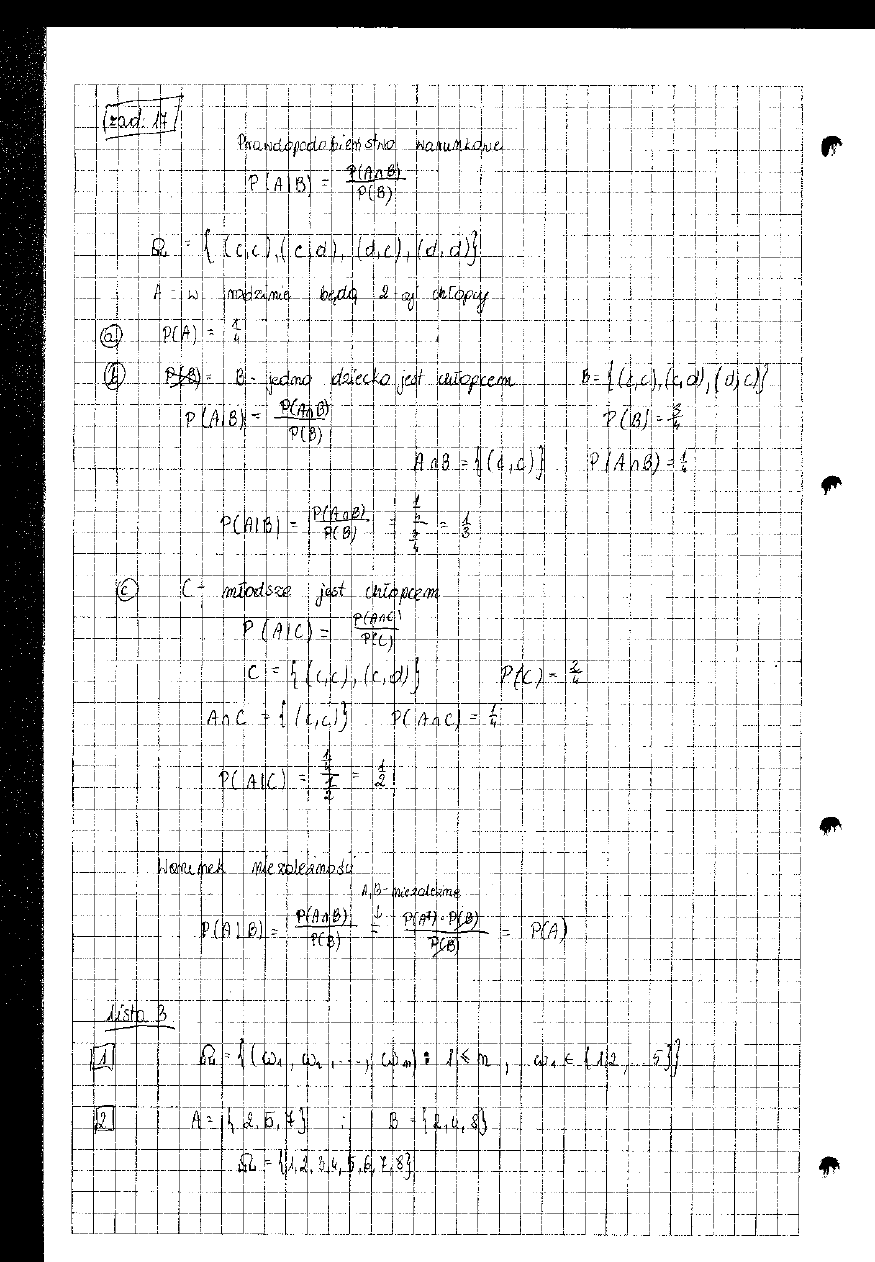 zad. 17
Prawdopodobieństwo warunkowe
P(A|B) = P(A∩B)/P(B)
Ω = { (c,c), (c,d), (d,c), (d,d)}
A = w rodzinie będą 2 aj chłopcy
(a) P(A) = 1/4
(b) P(B) = B - jedno dziecko jest chłopcem B = {(c,c), (c,d), (d,c)}
P(A|B) = P(A∩B)/P(B) P(B) = 3/4
A∩B = {(c,c)} P(A∩B) = 1/4
P(A|B) = P(A∩B)/P(B) = 1/4 / 3/4 = 1/3
(c) C - młodsze jest chłopcem
P(A|C) = P(A∩C)/P(C)
C = {(c,c), (c,d)} P(C) = 2/4
A∩C = {(c,c)} P(A∩C) = 1/4
P(A|C) = 1/4 / 1/2 = 1/2
Warunek niezależności
A,B - niezależne
P(A|B) = P(A∩B)/P(B) = P(A) · P(B)/P(B) = P(A)
Lista 3
1 Ω = {(ω₁, ω₂, ..., ωₙ) : 1 ≤ n , ω₁ ∈ {1,2, ... 5}}
2 A = {2,5,7} ; B = {2,4,8}
Ω = {1,2,3,4,5,6,7,8}